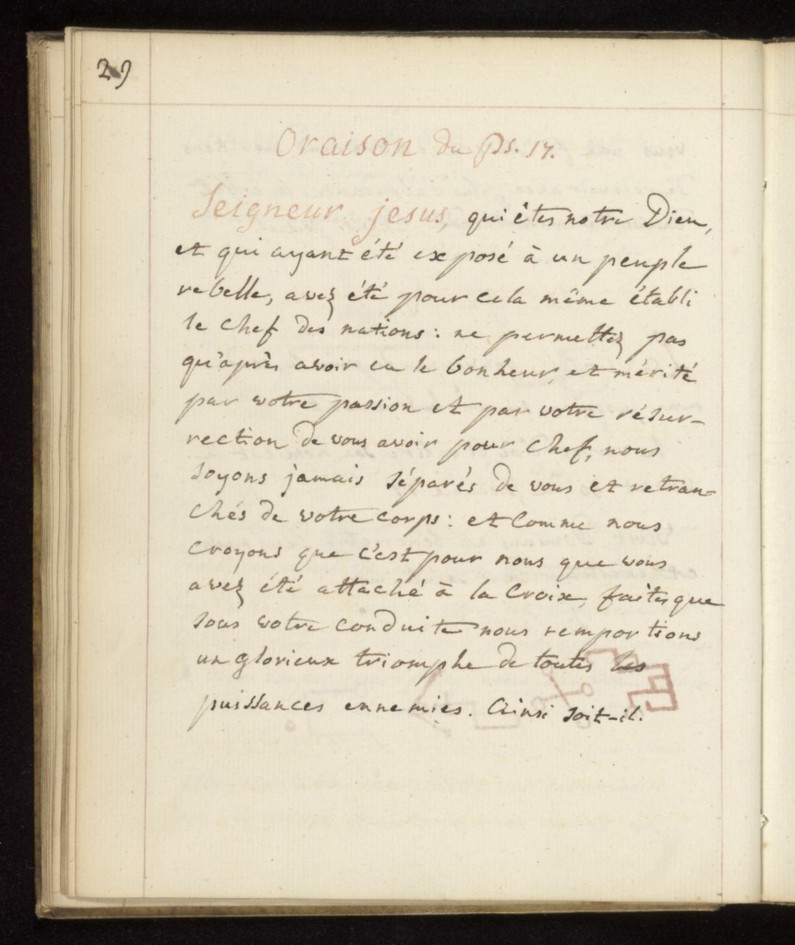 29
Oraison du Ps. 17.
Seigneur jesus, qui êtes notre Dieu,
et qui ayant été exposé à un peuple
rebelle, avez été pour cela même établi
le chef des nations: ne permettez pas
qu'après avoir eu le bonheur, et mérité
par votre passion et par votre résur-
rection de vous avoir pour chef, nous
soyons jamais séparés de vous et retran-
chés de votre corps: et comme nous
croyons que c'est pour nous que vous
avez été attaché à la Croix, faites que
sous votre conduite nous remportions
un glorieux triomphe de toutes les
puissances ennemies. Ainsi soit-il.